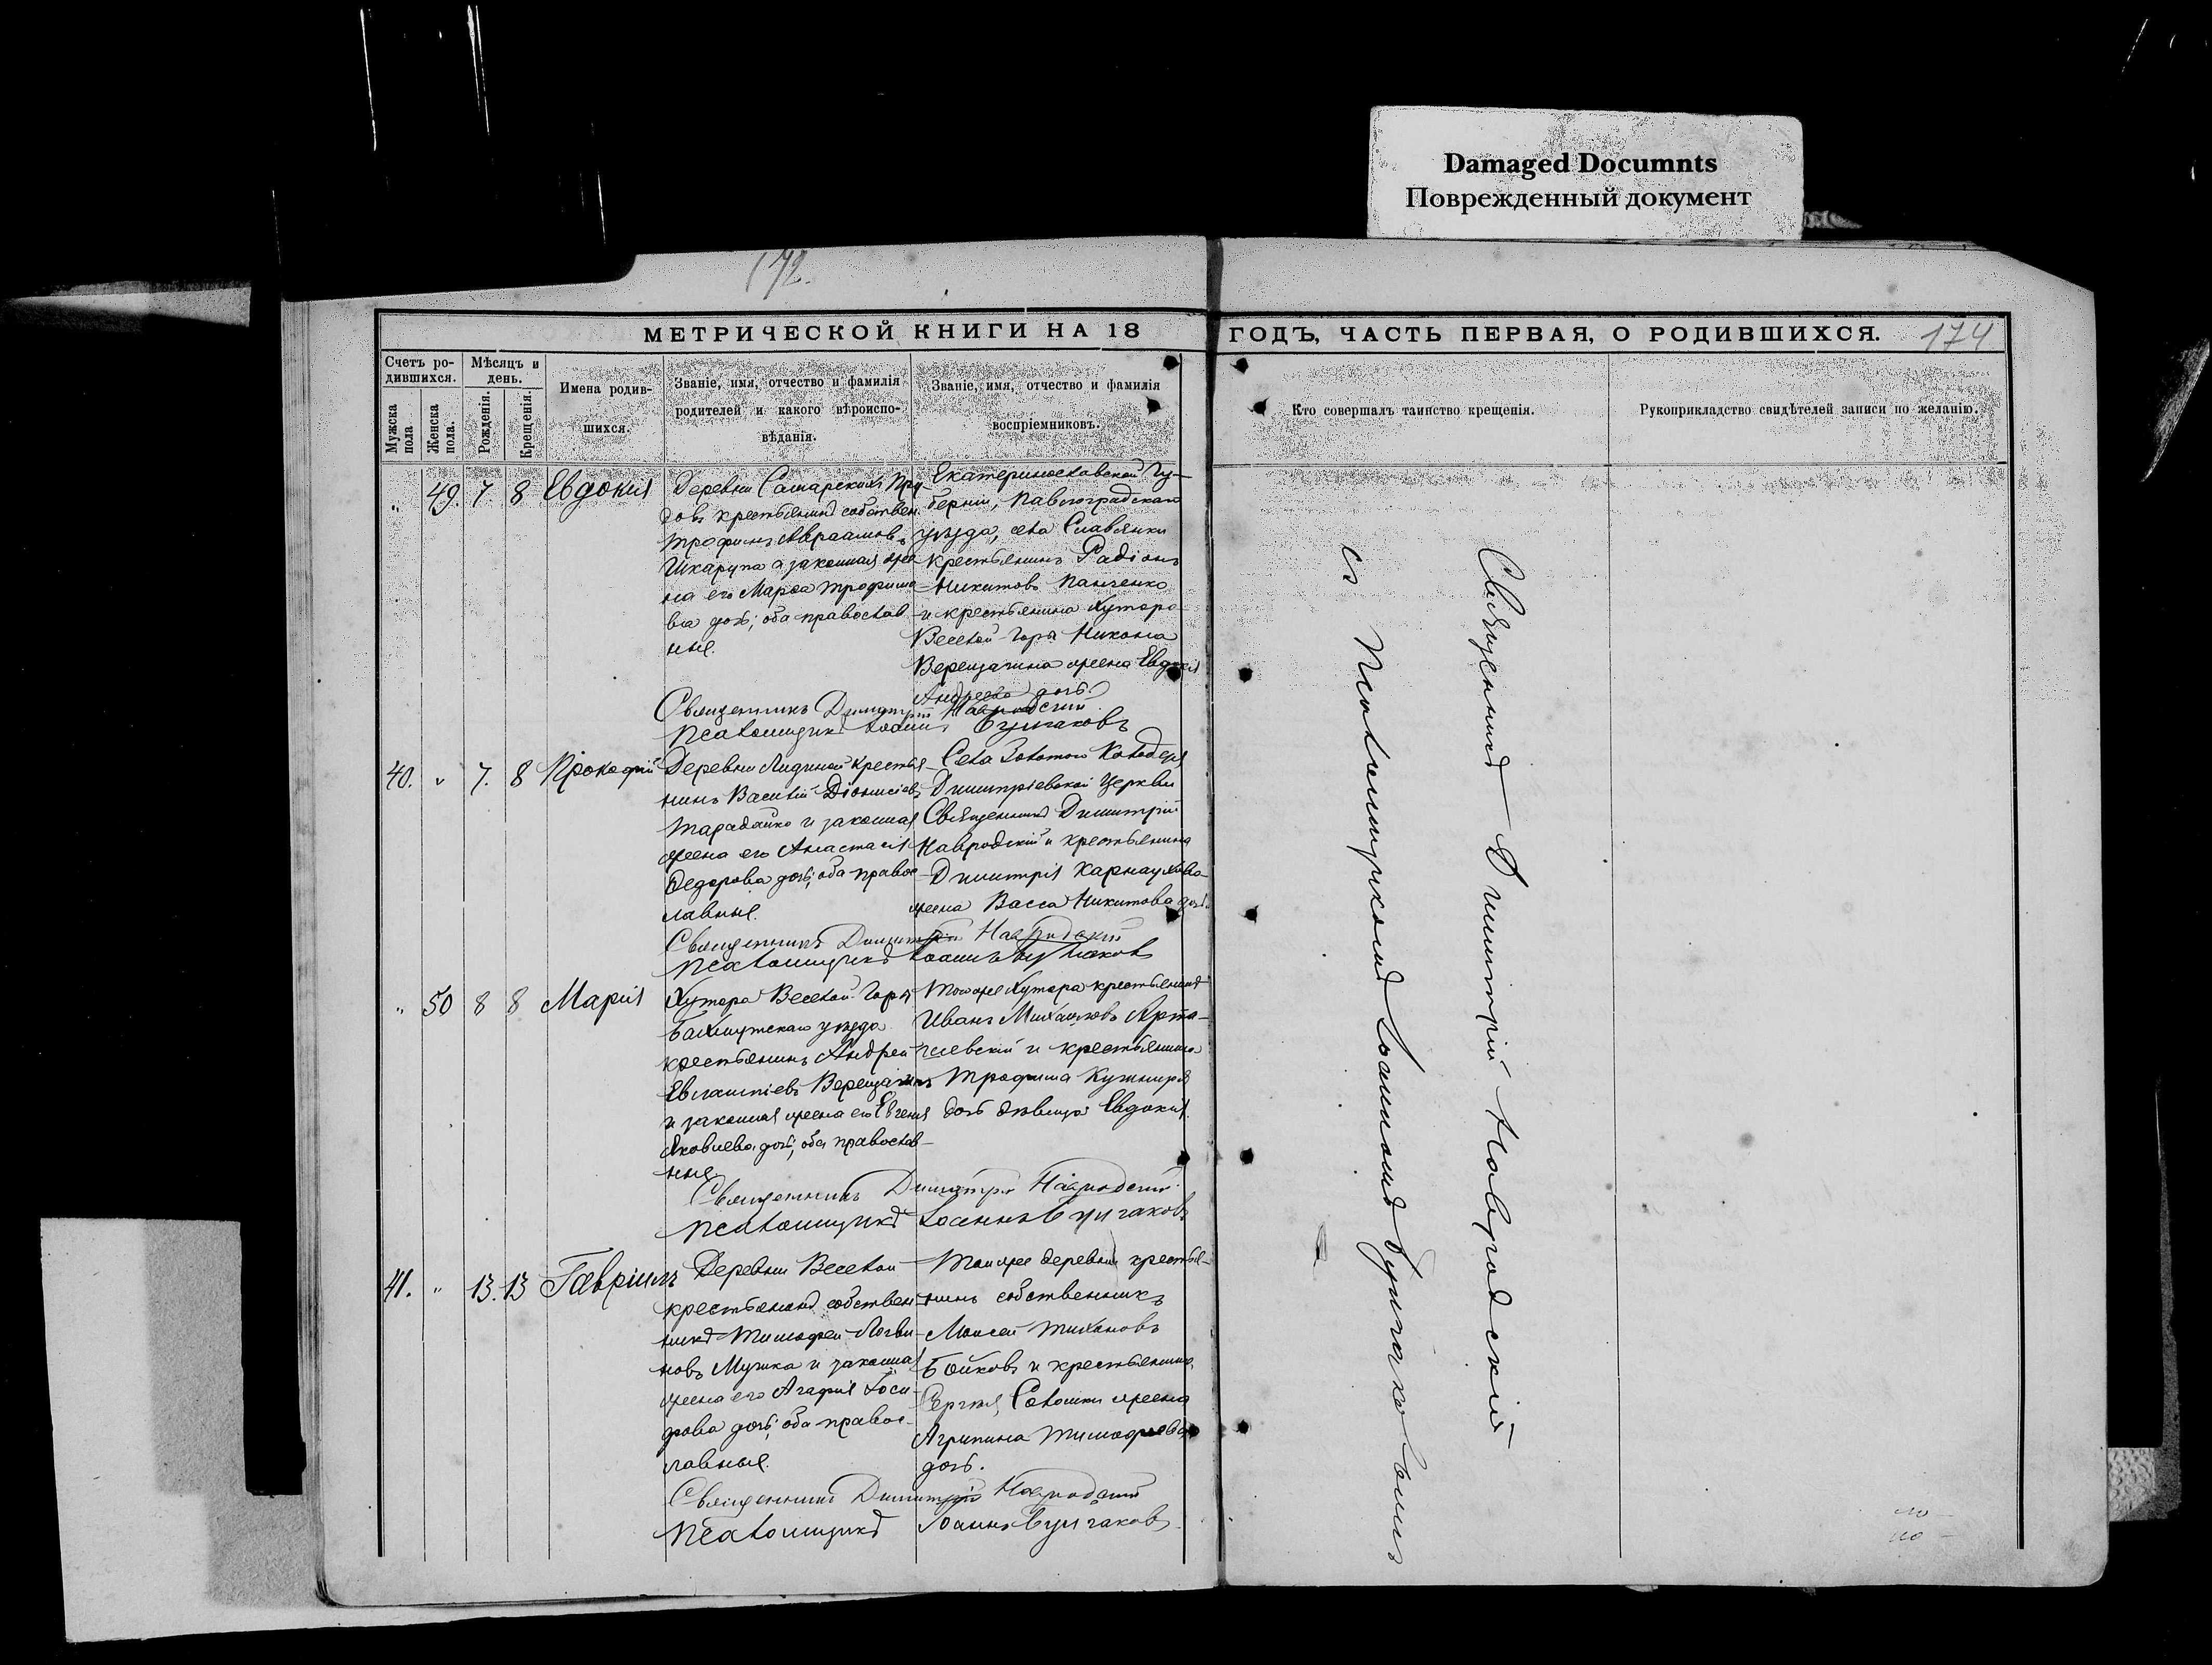 Damaged Documnts
Поврежденный документ
172.
174
МЕТРИЧЕСКОЙ КНИГИ НА 18 ГОДЪ, ЧАСТЬ ПЕРВАЯ, О РОДИВШИХСЯ.
Счетъ ро-
дившихся.
Мужска
пола
Женска
пола.
Мѣсяцъ и
день.
Рожденія.
Крещенія.
Имена родив-
шихся.
Званіе, имя, отчество и фамилія
родителей и какого вѣроиспо-
вѣданія.
Званіе, имя, отчество и фамилія
воспріемниковъ.
Кто совершалъ таинство крещенія.
Рукоприкладство свидѣтелей записи по желанію.
" 49. 7 8 Евдокія
Деревни Самарскихъ Пру-
довъ крестьянинъ собствен.
Трофимъ Авраамовъ
Шкарупа а законная же-
на его Марѳа Трофимо-
ва дочь; оба православ-
ные.
Екатеринославской Гу-
берніи, Павлоградскаго
уѣзда, села Славянки
крестьянинъ Радіонъ
Никитовъ Панченко
и крестьянина Хутора
Веселой-Горы Никона
Верещагина жена Евдокія
Андреева дочь.
Священникъ Димитрій Навродскій
Псаломщикъ Іоаннъ Булгаковъ
40. " 7. 8 Прокофій
Деревни Лидиной крестья-
нинъ Василій Діонисіевъ
Тарадайко и законная
жена его Анастасія
Ѳедорова дочь; оба правос-
лавные.
Села Золотого Колодезя
Димитріевской Церкви
Священникъ Димитрій
Навродскій и крестьянина
Димитрія Карнаухова
жена Васса Никитова дочь.
Священникъ Димитрій Навродскій
Псаломщикъ Іоаннъ Булгаковъ
" 50 8 8 Марія
Хутора Веселой-Горы
Бахмутскаго уѣзда
крестьянинъ Андрей
Евлампіевъ Верещагинъ
и законная жена его Евгенія
Яковлева дочь; оба православ-
ные
Тогоже Хутора крестьянинъ
Иванъ Михайловъ
и крестьянина
Трофима Кушнира
дочь дѣвица Евдокія.
Священникъ Димитрій Навродскій
Псаломщикъ Іоаннъ Булгаковъ
41. " 13. 13 Гавріилъ
Деревни Веселой
крестьянинъ собствен-
никъ Тимофей Логви-
новъ Мушка и законная
жена его Агафія
дочь; оба правос-
лавные.
Тойже деревни крестья-
нинъ собственникъ
Моисей Тихоновъ
Бойковъ и крестьянина
Сергія Солошки жена
Агрипина Тимофеева
дочь.
Священникъ Димитрій Навродскій
Псаломщикъ Іоаннъ Булгаковъ
Священникъ Димитрій Навродскій
съ Псаломщикомъ Іоанномъ Булгаковымъ